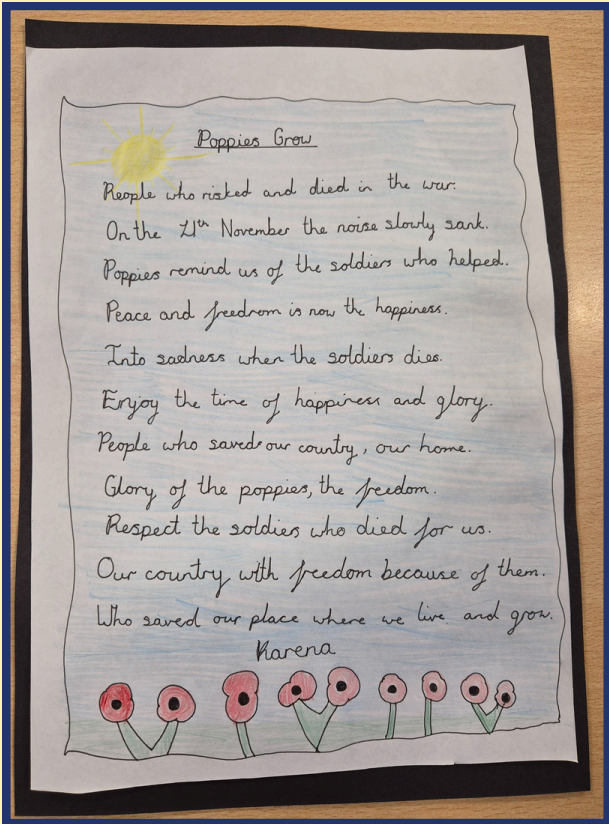 Poppies Grow
People who risked and died in the war.
On the 11th November the noise slowly sank.
Poppies remind us of the soldiers who helped.
Peace and freedrom is now the happiness.
Into sadness when the soldiers dies.
Enjoy the time of happiness and glory.
People who saved our country, our home.
Glory of the poppies, the freedom.
Respect the soldiers who died for us.
Our country with freedom because of them.
Who saved our place where we live and grow.
Karena